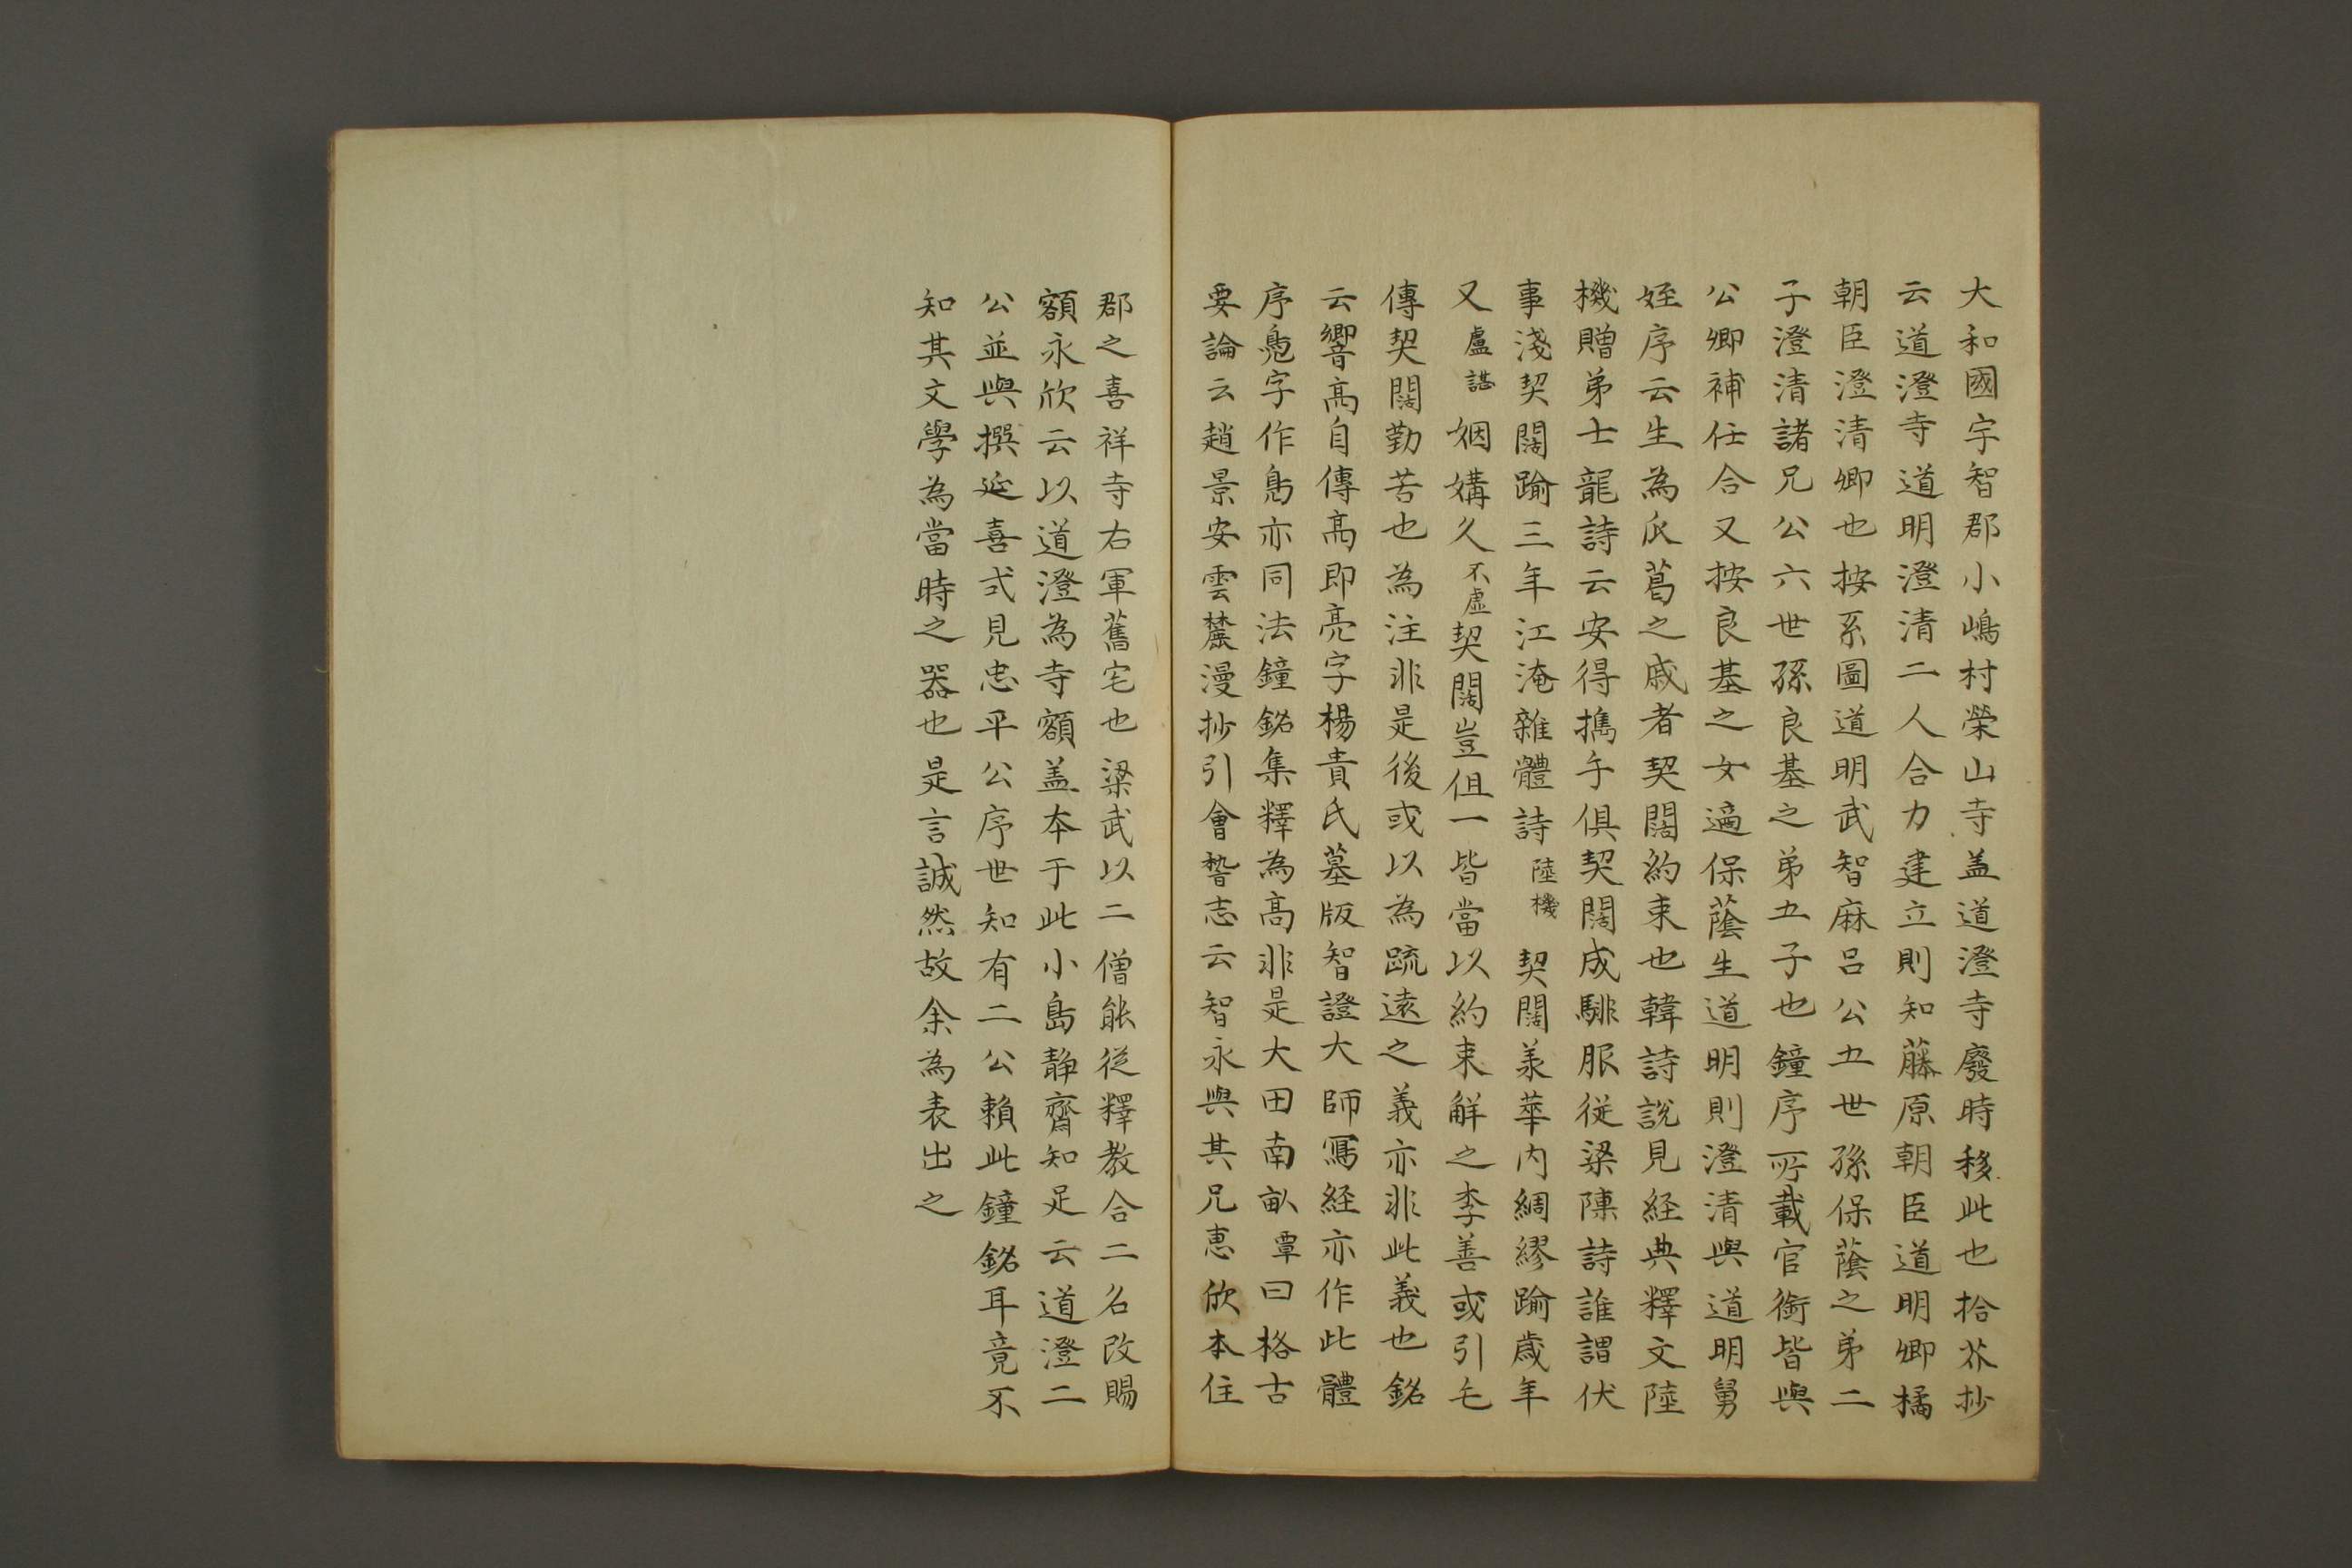 大和國宇智郡小嶋村榮山寺盖道澄寺廢時移此也拾芥抄
云道澄寺道明澄清二人合力建立則知藤原朝臣道明卿橘
朝臣澄清卿也按系圖道明武智麻呂公五世孫保蔭之弟二
子澄清諸兄公六世孫良基之弟五子也鐘序所載官銜皆與
公卿補任合又按良基之女適保蔭生道明則澄清與道明舅
姪序云生為瓜葛之戚者契闊約束也韓詩說見経典釋文陸
機贈弟士龍詩云安得攜手俱契闊成騑服従梁陳詩誰謂伏
事淺契闊踰三年江淹雜體詩陸機契闊羕華内綢繆踰歳年
又盧諶姻媾久不虛契闊豈但一皆當以約束解之李善或引毛
傳契闊勤苦也為注非是後或以為疏遠之義亦非此義也銘
云響髙自傳髙即亮字楊貴氏墓版智證大師寫経亦作此體
序鳧字作鳬亦同法鐘銘集釋為髙非是大田南畝覃曰格古
要論云趙景安雲麓漫抄引會嵇志云智永與其兄恵欣本住
郡之喜祥寺右軍舊宅也梁武以二僧能従釋教合二名改賜
額永欣云以道澄為寺額盖本于此小島静齋知足云道澄二
公並與撰延喜式見忠平公序世知有二公賴此鐘銘耳竟不
知其文學為當時之器也是言誠然故余為表出之